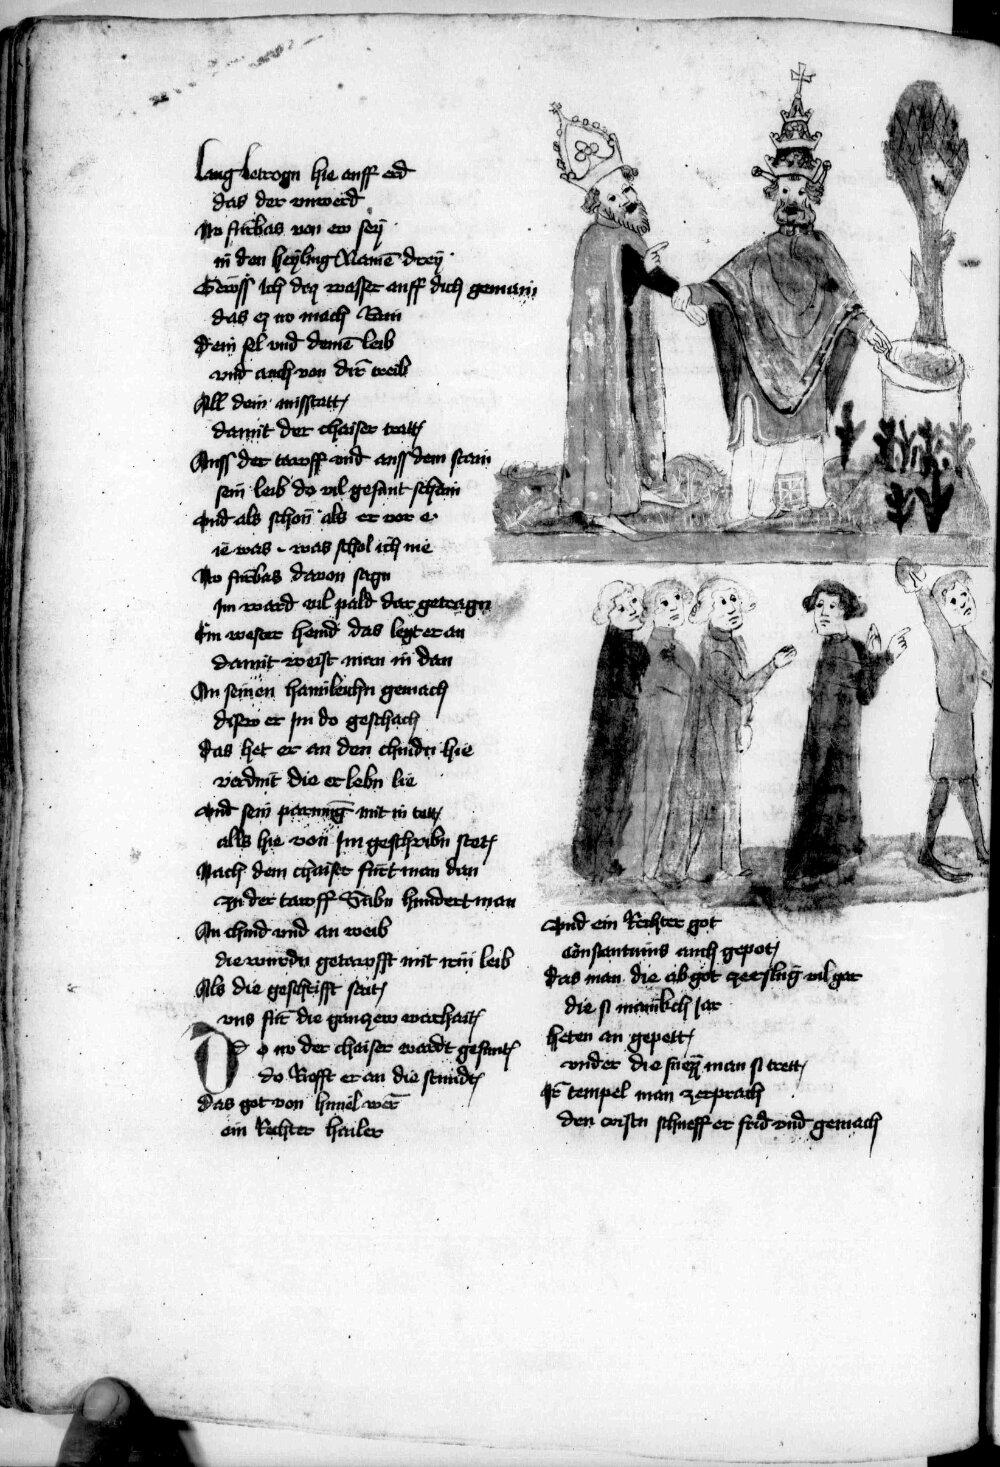 lang betrogn hie auff erd
das der unwerd
No fürbas von ew sey
in den heyling Namē drey
Gewss ich dz wasser auff dich gemain
das ez no mach Rain
Dein sel vnd deinē leib
vnd auch von dir treib
All dein misstatt
damit der chaiser tratt
Auss der tawff vnd auss dem stain
sein leib do vil gesunt schain
vnd als schon als er vor e
ie was was schol ich me
No fürbas davon sagn
Im ward vil pald dar getragn
Ein wester hemd das legt er an
damit weist man in dan
An seinen haimleichn gemach
diser er Im do geschach
das het er an den chindn hie
verdint die er lebn lie
vnd sein parmūg mit in tett
alls hie von Im geschribn stet
Nach dem chaiser fürt man dan
zu der tawff Sibn hundert man
An chind vnd an weib
die wurdn getawfft mit irm leib
Als die geschrifft sait
vns für die ganzew warhait
Do no der chaiser wardt gesunt
do Rofft er an die stund
Das got von himel wer
ein Rechter hailer
vnd ein Rechter got
Constantinus auch gepot
das man die abgöt zerslug vil gar
die si manikch Jar
heten an gepett
vnder die füezz man si trett
Ir tempel man zerprach
den cristn schueff er frid vnd gemach